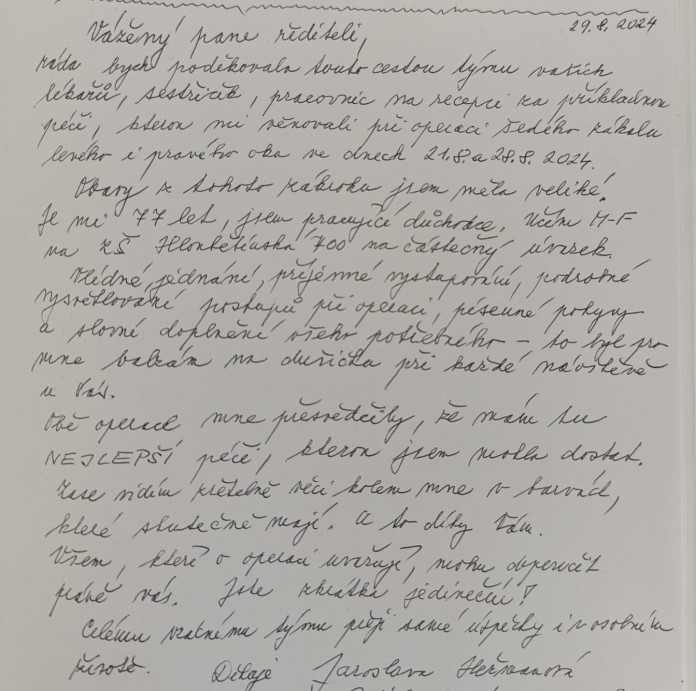 29.8.2024
Vážený pane řediteli,
ráda bych poděkovala touto cestou týmu vašich
lékařů, sestřiček, pracovnic na recepci za příkladnou
péči, kterou mi věnovali při operaci šedého zákalu
levého i pravého oka ve dnech 21.8. a 28.8. 2024.
Obavy z tohoto zákroku jsem měla veliké.
Je mi 77 let, jsem pracující důchodce. Učím M-F
na ZŠ Hloubětínská 700 na částečný úvazek.
Vlídné jednání, příjemné vystupování, podrobné
vysvětlování postupů při operaci, písemné pokyny
a slovní doplnění všeho potřebného – to byl pro
mne balzám na dušičku při každé návštěvě
u Vás.
Obě operace mne přesvědčily, že mám tu
NEJLEPŠÍ péči, kterou jsem mohla dostat.
Zase vidím zřetelně věci kolem mne v barvách,
které skutečně mají. A to díky Vám.
Všem, kteří o operaci uvažují, mohu doporučit
právě vás. Jste zkrátka jedineční!
Celému vzácnému týmu přeji samé úspěchy i v osobním
životě. Děkuje Jaroslava Heřmanová